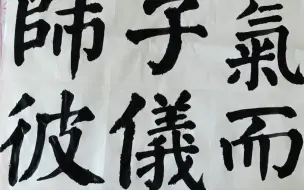 氣而
子儀
師彼